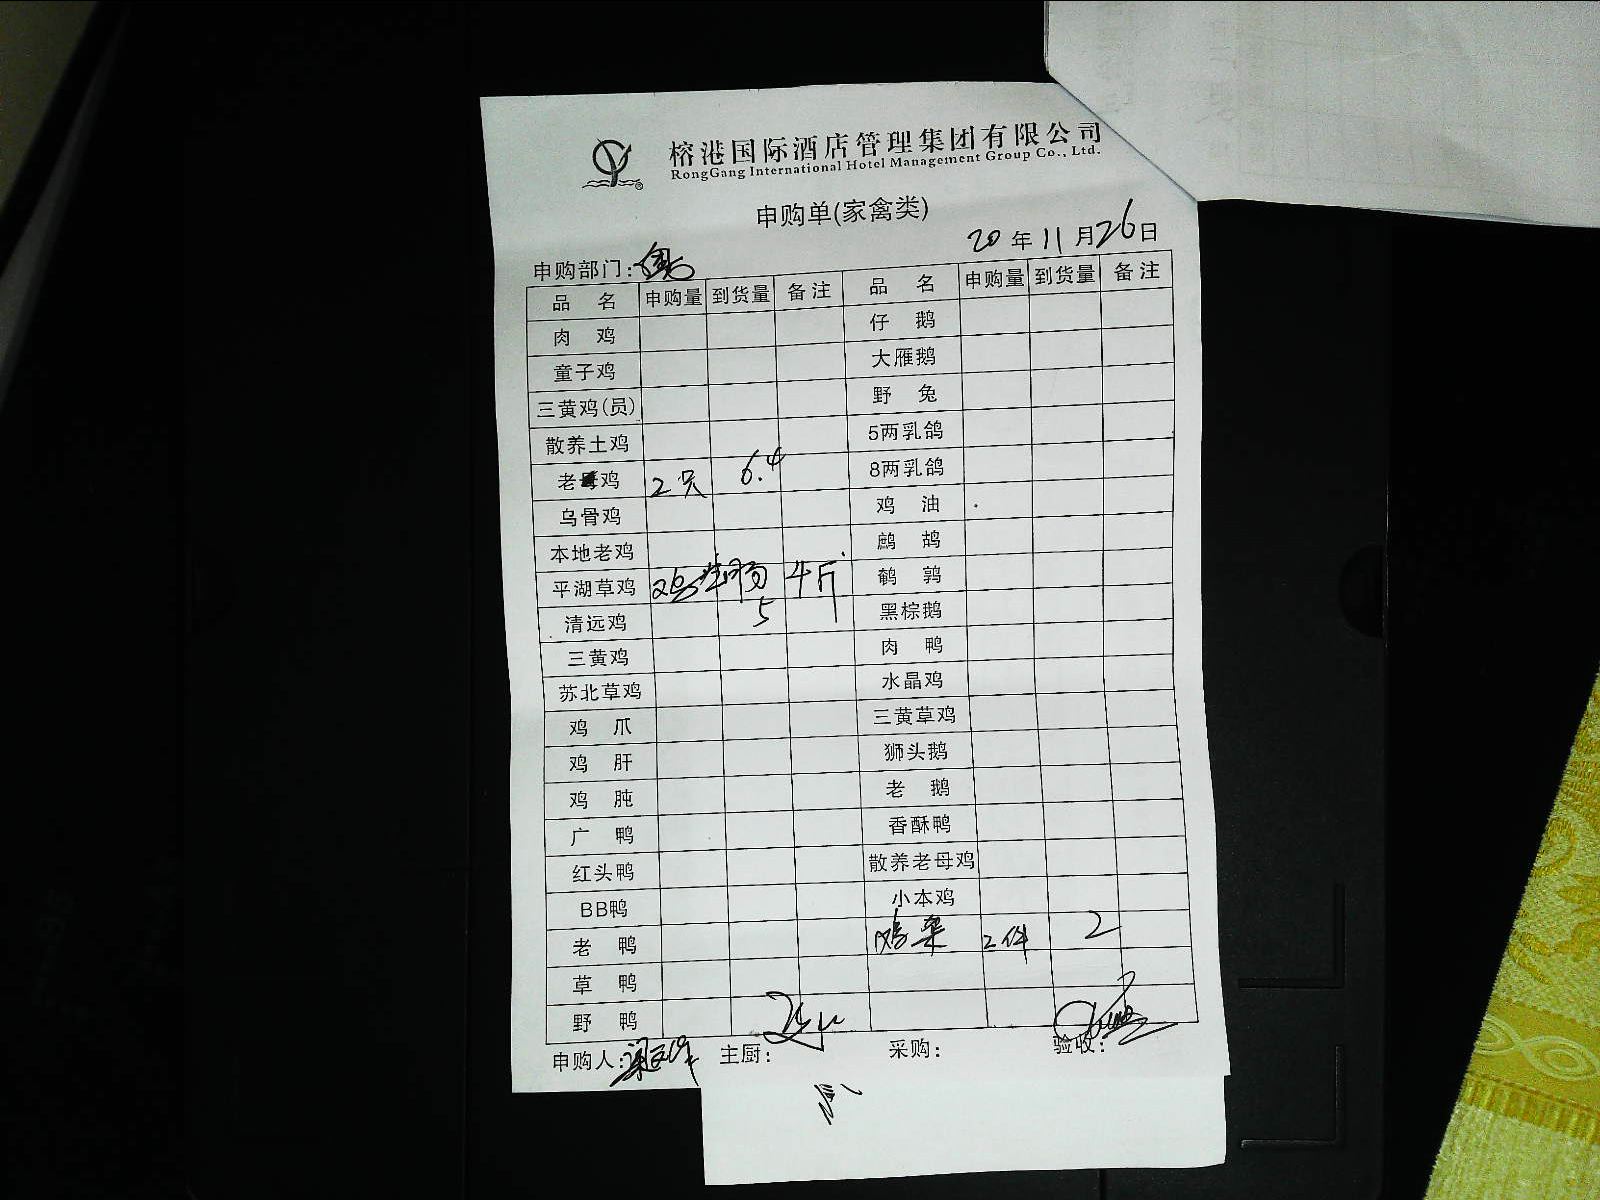 榕港国际酒店管理集团有限公司
RongGang International Hotel Management Group Co., Ltd.
申购单(家禽类)
20年11月26日
申购部门:
品 名 申购量 到货量 备注 品 名 申购量 到货量 备注
肉 鸡 仔 鹅
童子鸡 大雁鹅
三黄鸡(员) 野 兔
散养土鸡 5两乳鸽
老母鸡 2只 6.4 8两乳鸽
乌骨鸡 鸡 油
本地老鸡 鹧 鸪
平湖草鸡 鸡 肠 4斤 鹌 鹑
清远鸡 5 黑棕鹅
三黄鸡 肉 鸭
苏北草鸡 水晶鸡
鸡 爪 三黄草鸡
鸡 肝 狮头鹅
鸡 肫 老 鹅
广 鸭 香酥鸭
红头鸭 散养老母鸡
BB鸭 小本鸡
老 鸭 鸡 2件 2
草 鸭
野 鸭
申购人: 主厨: 采购: 验收: